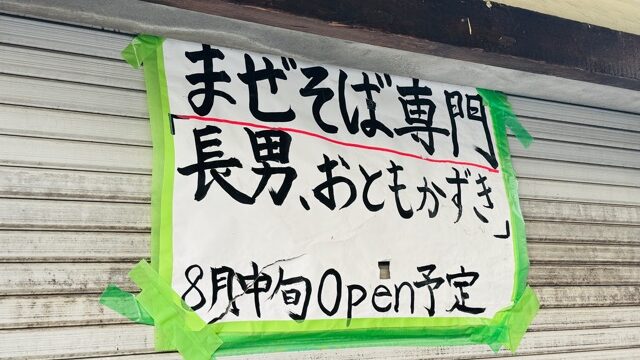 まぜそば専門
「長男、おともかずき」
8月中旬Open予定